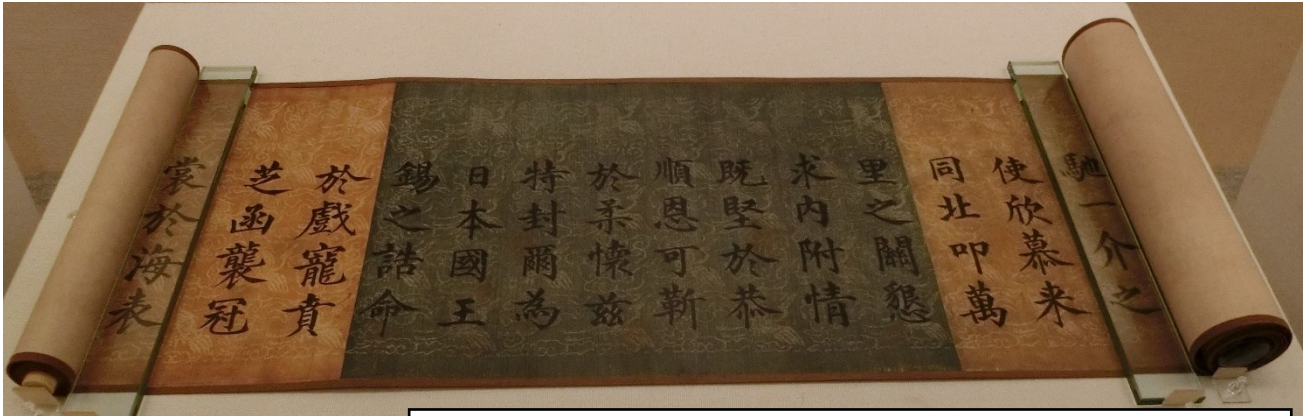 馳一介之
使欣慕来
同北叩萬
里之關懇
求内附情
既堅於恭
順恩可靳
於柔懷茲
特封爾為
日本國王
錫之誥命
於戲寵賁
芝函襲冠
裳於海表